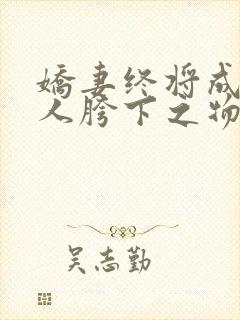 娇妻终将成
人胯下之物
吴志勤